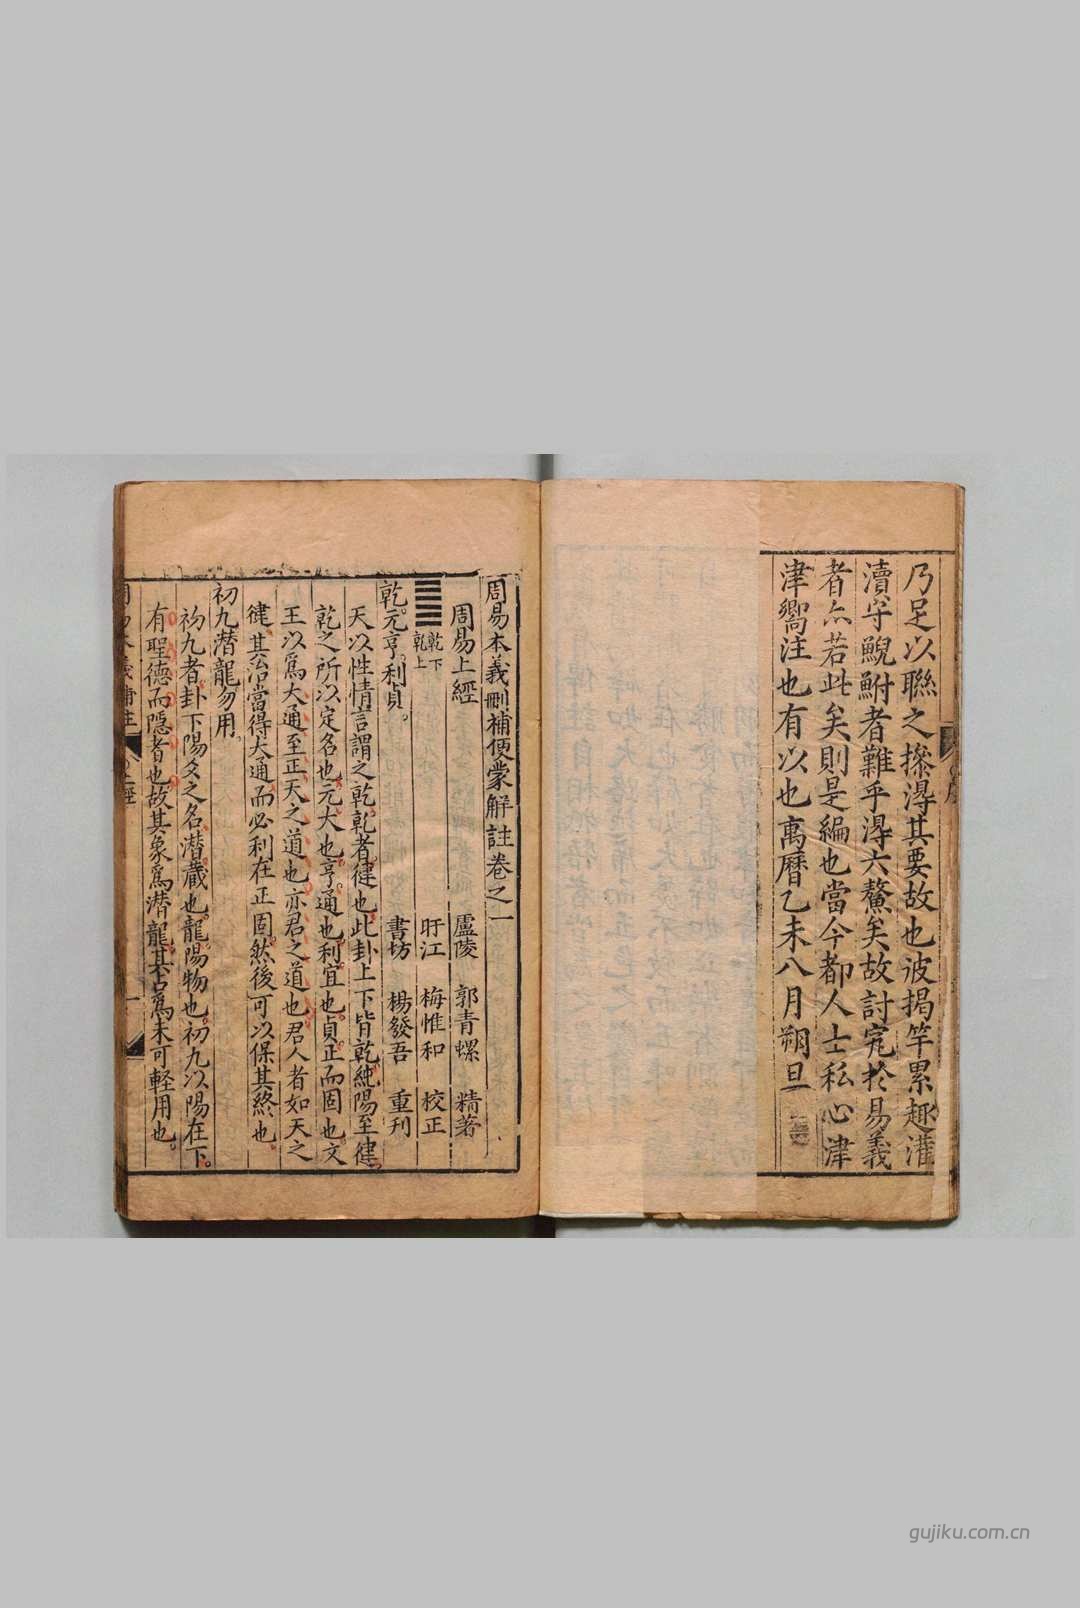 乃足以聯之摻淂其要故也彼揭竿累趣灌
瀆守鯢鮒者難乎淂六鰲矣故討究於易義
者亦若此矣則是編也當今都人士私心津
津嚮注也有以也萬曆乙未八月朔旦
周易本義刪補便蒙解註卷之一
周易上經
盧陵 郭青螺 精著
盱江 梅惟和 校正
書坊 楊發吾 重刋
乾下
乾上
乾。元亨。利貞。
天以性情言謂之乾乾者徤也此卦上下皆乾純陽至徤。
乾之所以定名也。元大也。亨通也。利宜也。貞正而固也文
王以爲大通至正天之道也亦君之道也君人者如天之
徤。其治當得大通。而必利在正固。然後可以保其終也。
初九潜龍勿用。
初九者。卦下陽爻之名。潜藏也。龍。陽物也。初九以陽在下。
有聖德而隱者也。故其象爲潜龍。其占爲未可輕用也。
gujiku.com.cn